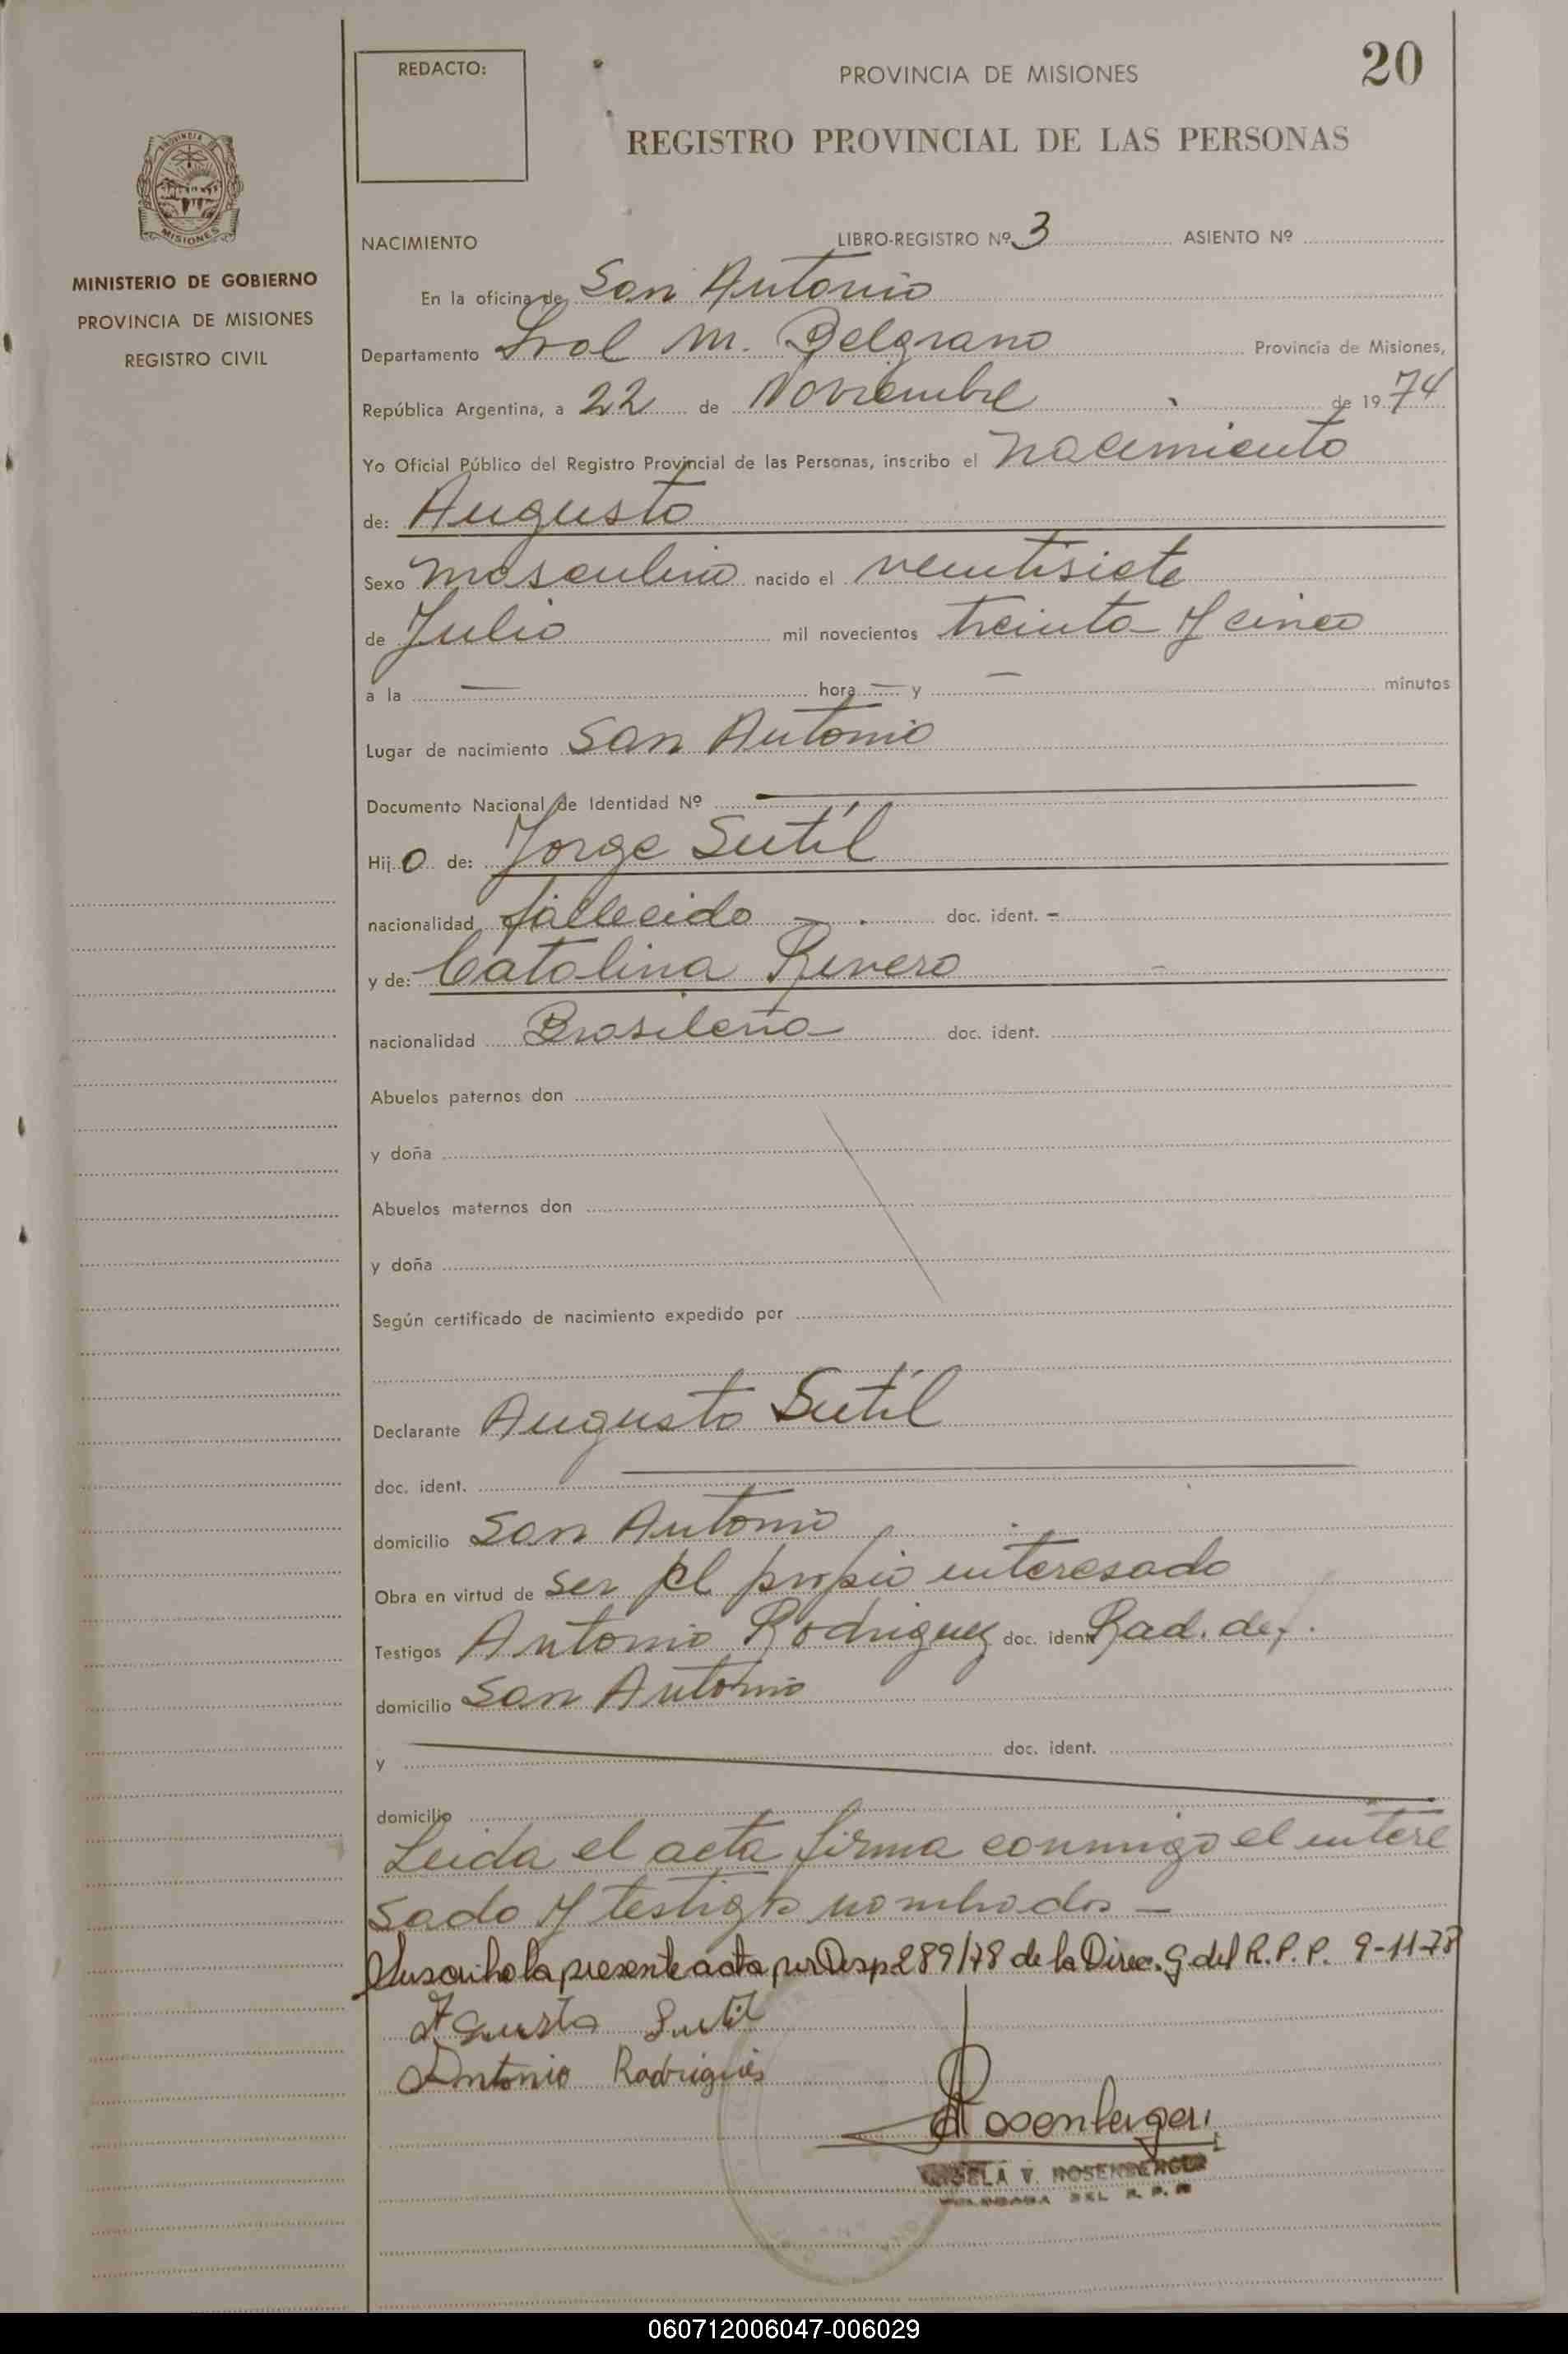 REDACTO:
PROVINCIA DE MISIONES
20
REGISTRO PROVINCIAL DE LAS PERSONAS
PROVINCIA DE
MISIONES
MINISTERIO DE GOBIERNO
PROVINCIA DE MISIONES
REGISTRO CIVIL
NACIMIENTO LIBRO-REGISTRO Nº 3 ASIENTO Nº
En la oficina de San Antonio
Departamento Gral M. Belgrano Provincia de Misiones,
República Argentina, a 22 de Noviembre de 1974
Yo Oficial Público del Registro Provincial de las Personas, inscribo el nacimiento
de: Augusto
Sexo masculino nacido el ventisiete
de Julio mil novecientos treinta y cinco
a la — hora — y — minutos
Lugar de nacimiento San Antonio
Documento Nacional de Identidad Nº
Hijo de: Jorge Sutil
nacionalidad fallecido — doc. ident. -
y de: Catalina Rivero
nacionalidad Brasileña doc. ident.
Abuelos paternos don
y doña
Abuelos maternos don
y doña
Según certificado de nacimiento expedido por
Declarante Augusto Sutil
doc. ident.
domicilio San Antonio
Obra en virtud de ser el propio interesado
Testigos Antonio Rodriguez doc. ident. Rad. def.
domicilio San Antonio
y doc. ident.
domicilio
Leida el acta firma conmigo el intere
sado y testigo nombrados —
Suscribo la presente acta por Disp. 289/78 de la Direc. G. del R. P. P. 9-11-78
Agusto Sutil
Antonio Rodrigues
Rosenberger
V. ROSENBERGER
DEL R. P. P.
060712006047-006029